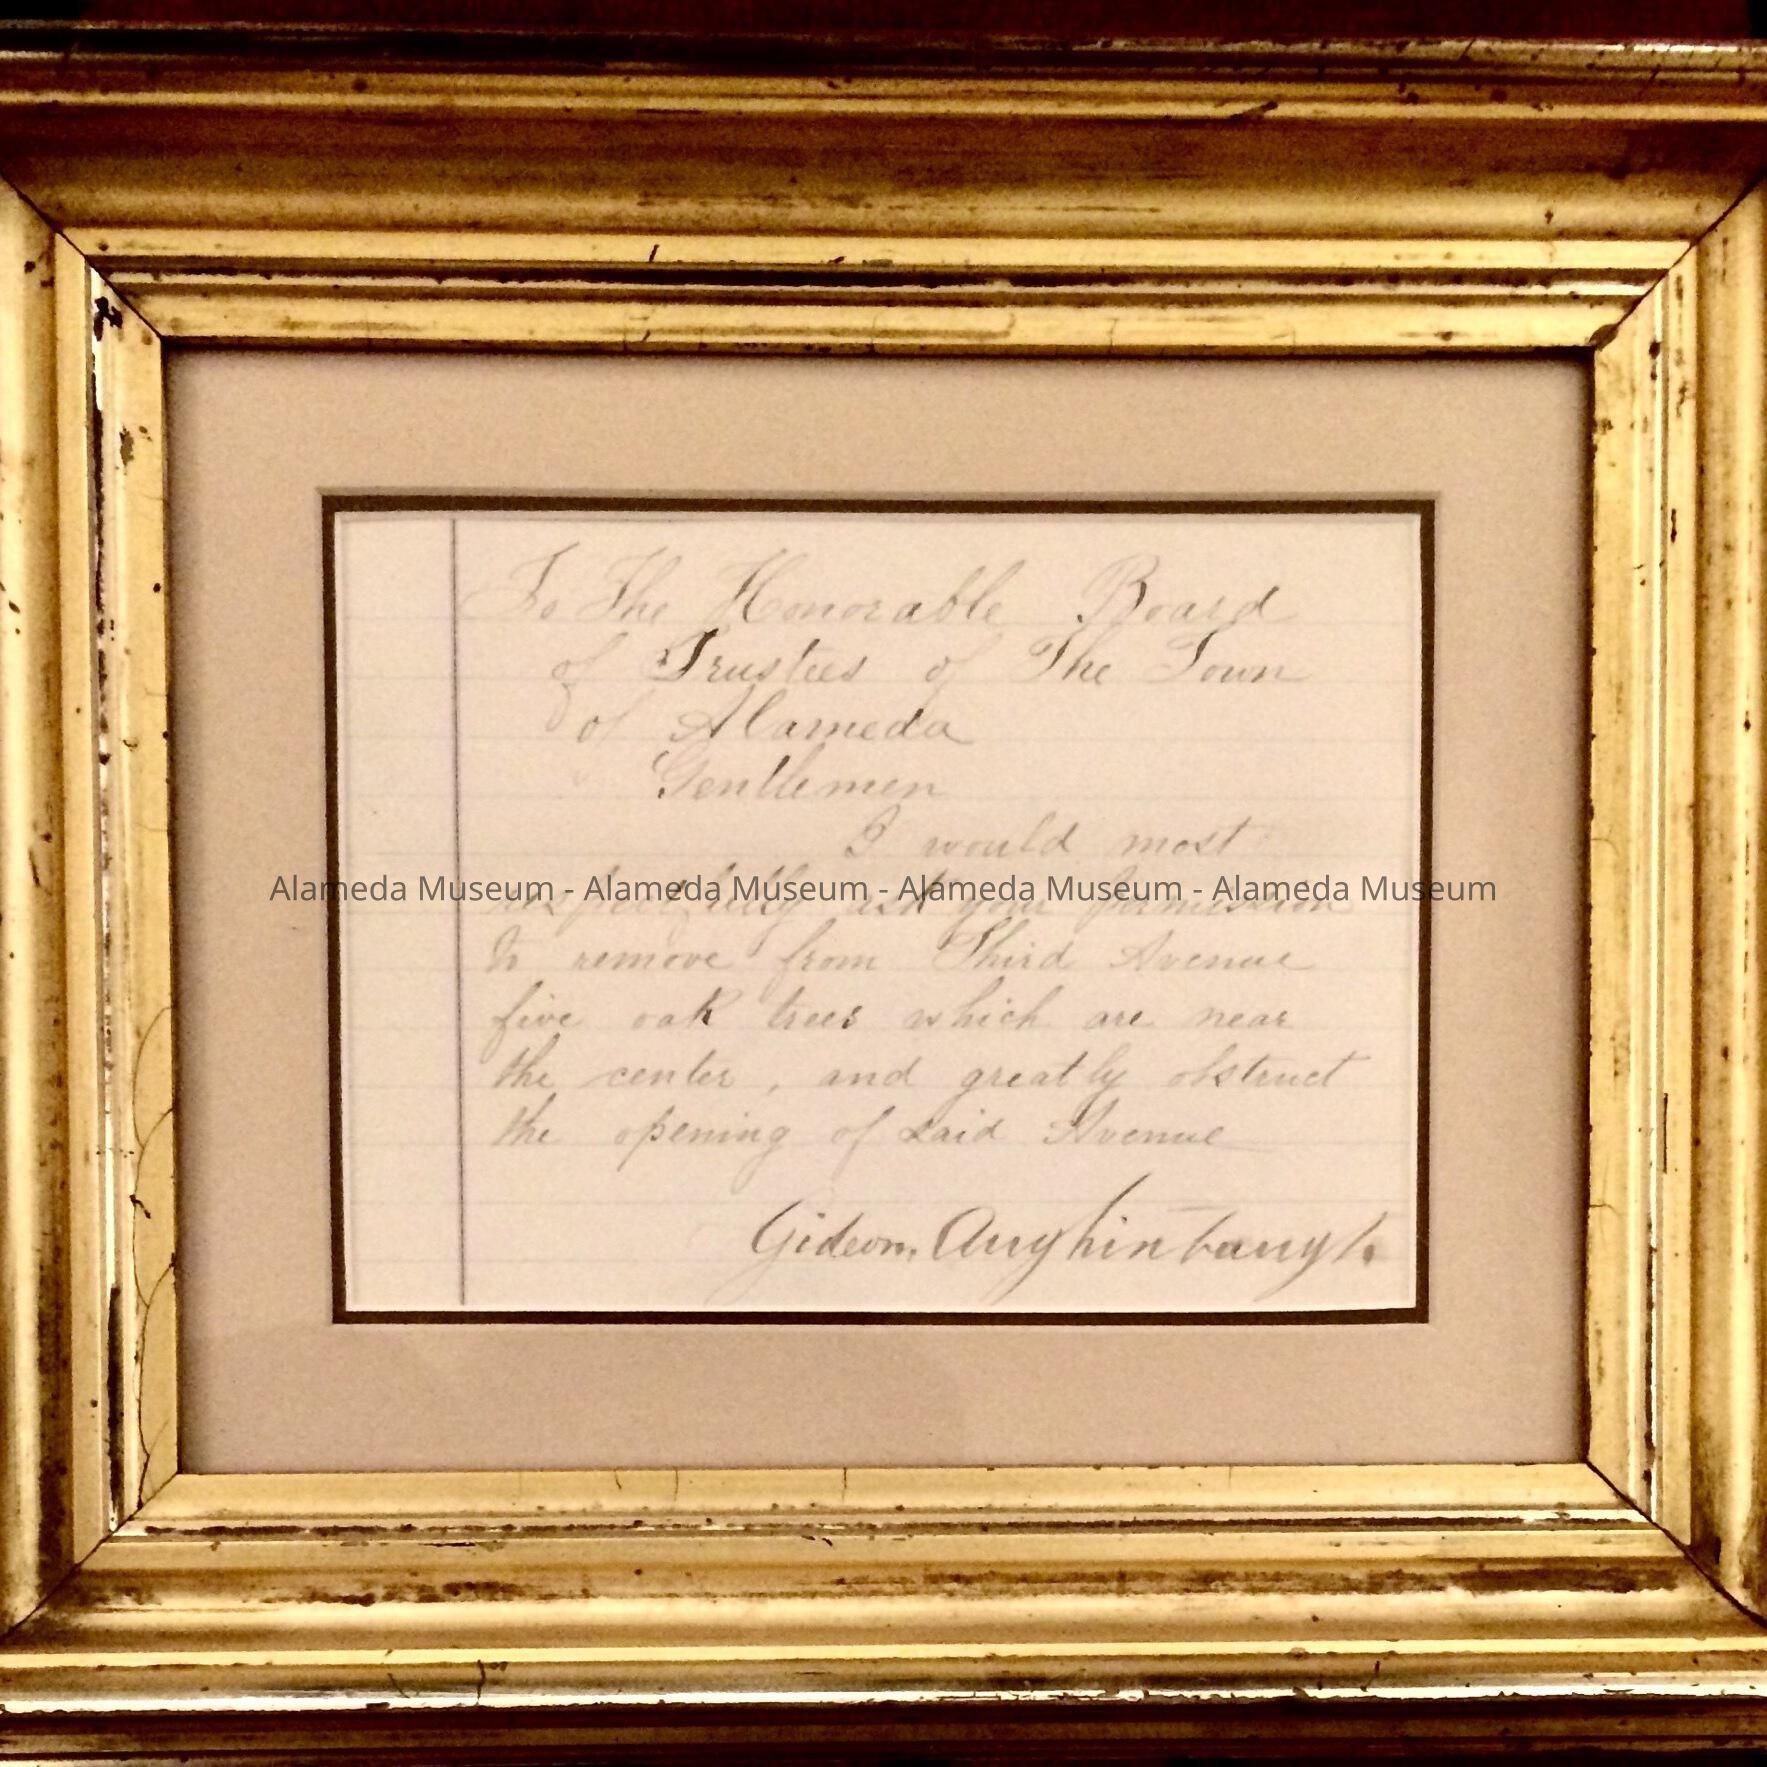 To The Honorable Board
of Trustees of The Town
of Alameda
Gentlemen
I would most
respectfully ask your permission
Alameda Museum - Alameda Museum - Alameda Museum - Alameda Museum
to remove from Third Avenue
five oak trees which are near
the center, and greatly obstruct
the opening of said Avenue
Gideon Aughinbaugh.